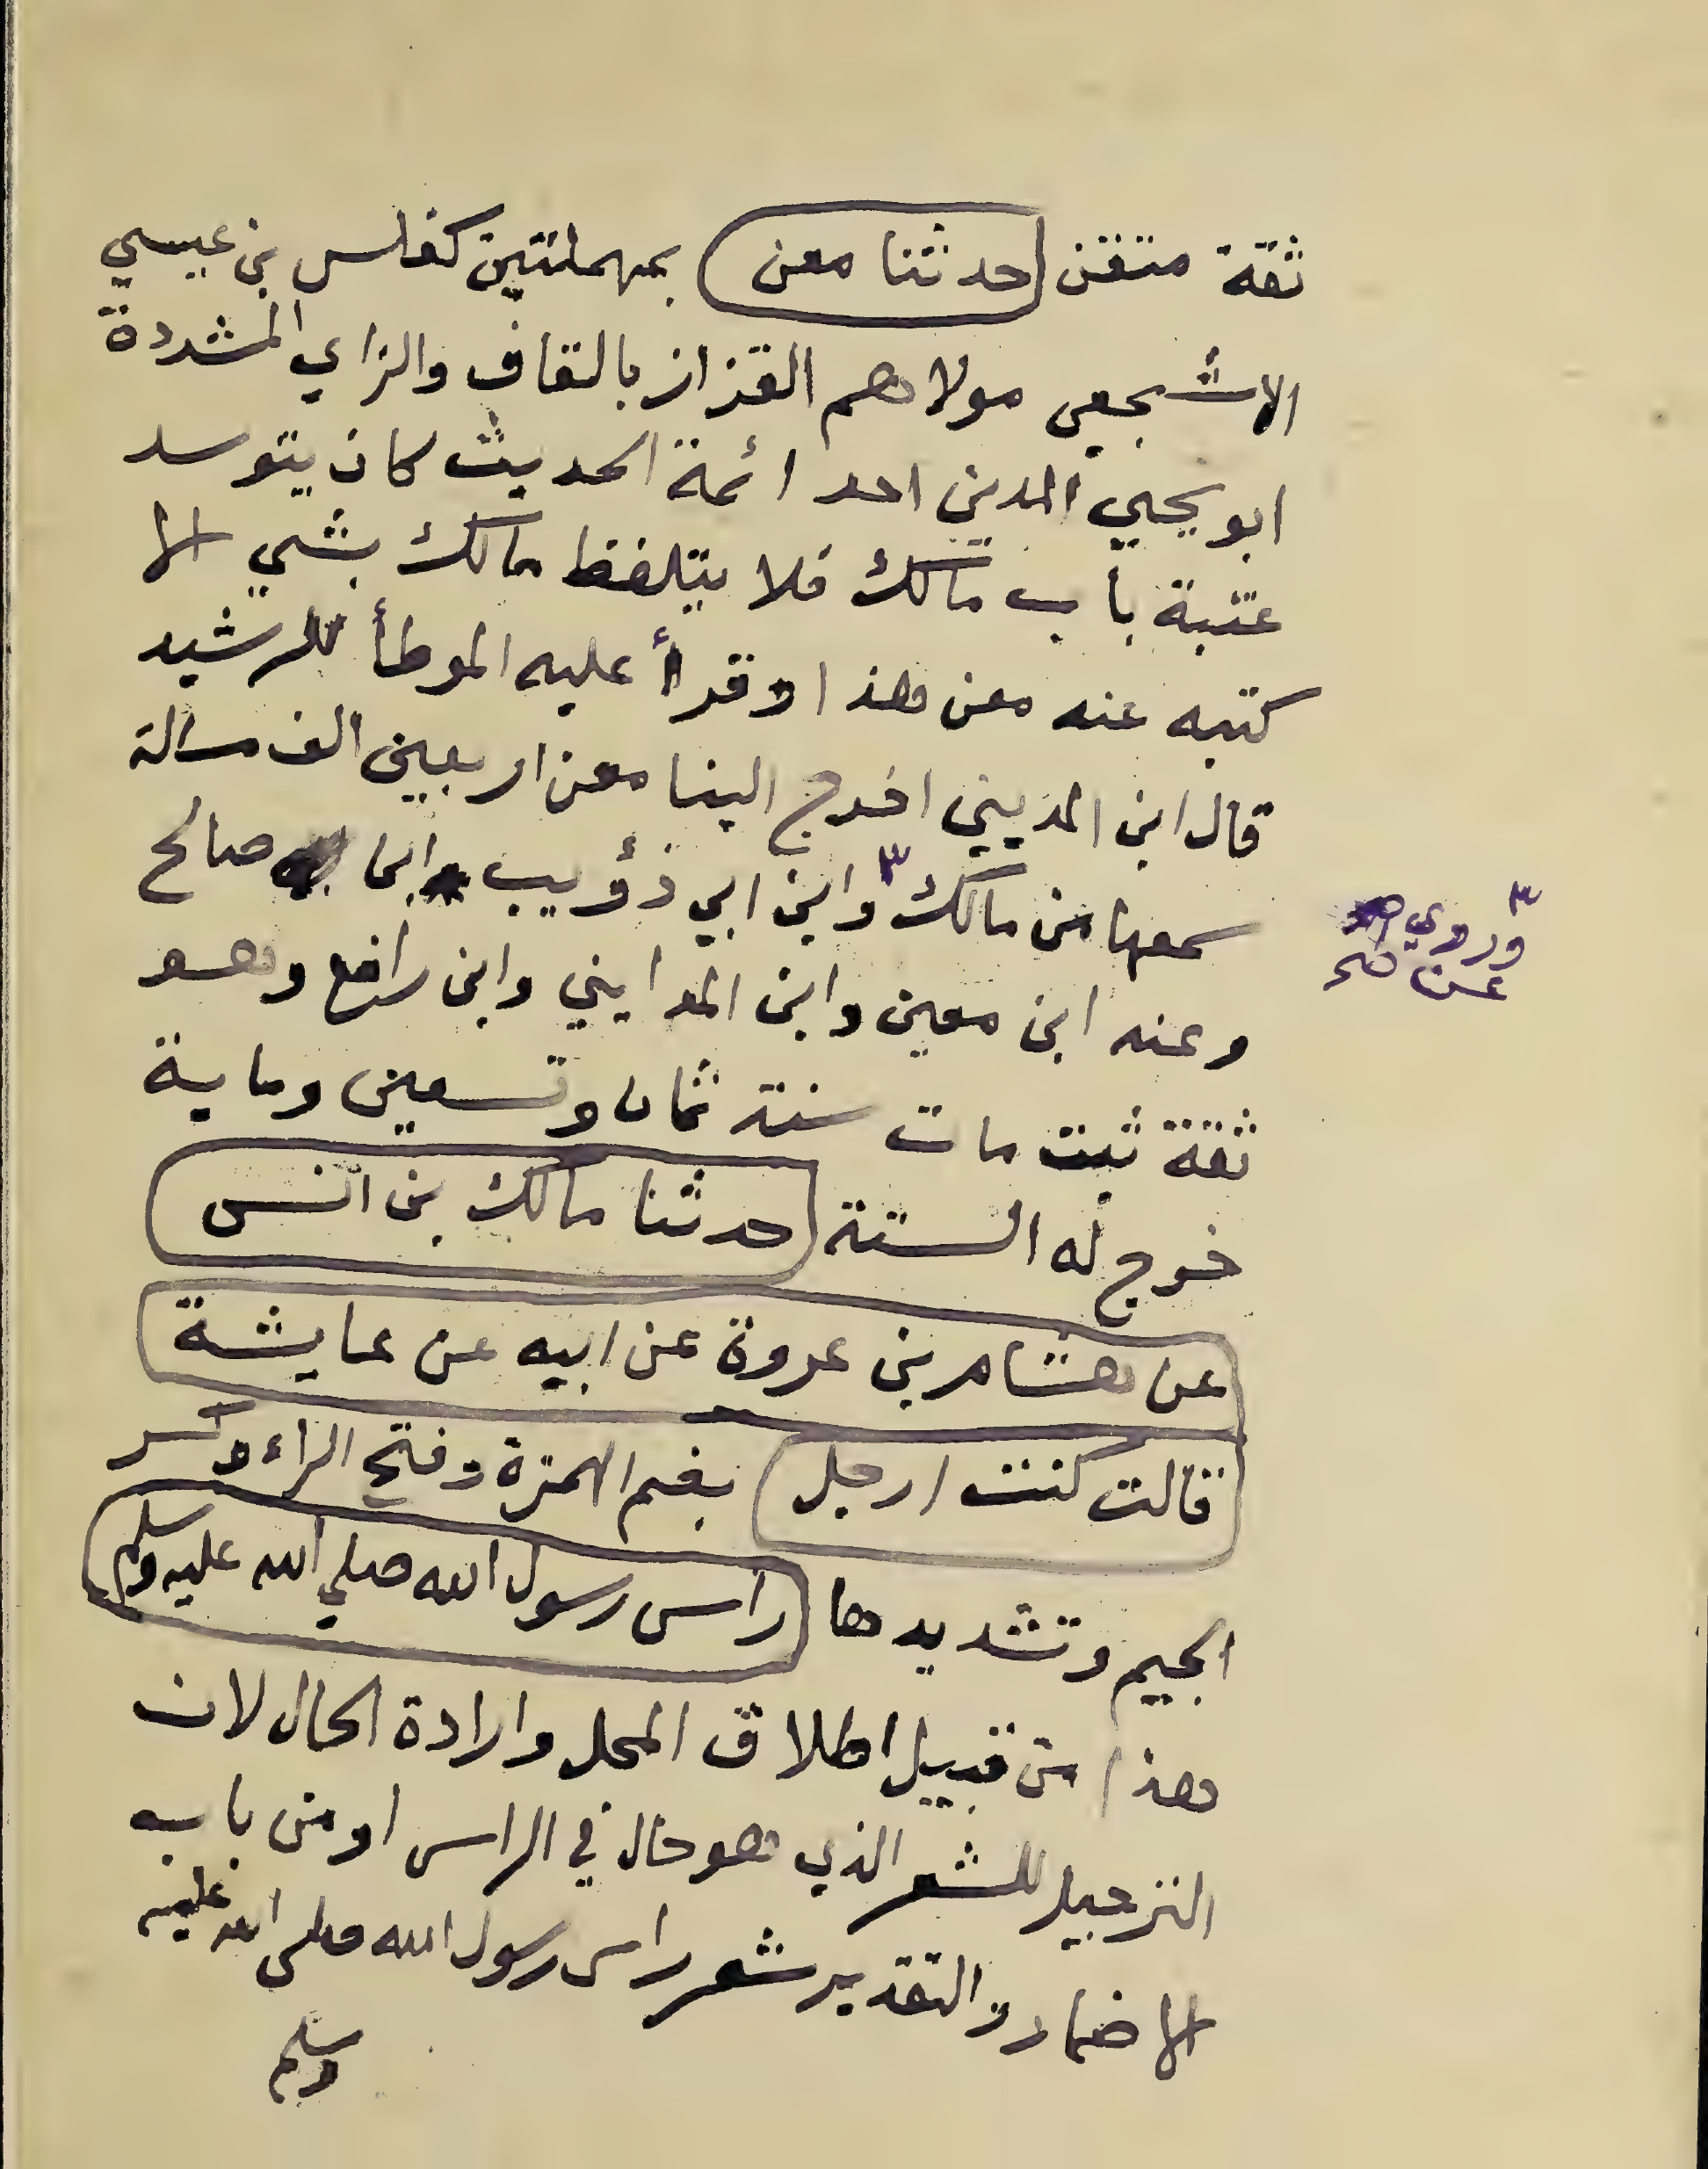 ثقة متقن حدثنا معن بمهملتين كفلس بن عيسي
الاشجعي مولاهم القزاز بالقاف والزاي المشددة
ابو يحيي المدني احد ائمة الحديث كان يتوسد
عتبة باب مالك فلا يتلفظ مالك بشي الا
كتبه عنه معن هذا وقرأ عليه الموطأ للرشيد
قال ابن المديني اخرج الينا معن اربعين الف مسالة
سمعها من مالك ٣ وابن ابي ذؤيب وابى صالح
٣ وروي
عن صح
وعنه ابن معين وابن المدايني وابن رافع وهو
ثقة ثبت مات سنة ثمان وتسعين وماية
خرج له الستة حدثنا مالك بن انس
عن هشام بن عروة عن ابيه عن عايشة
قالت كنت ارجل بضم الهمزة وفتح الراء وكسر
الجيم وتشديدها راس رسول الله صلي الله عليه وسلم
هذا من قبيل اطلاق المحل وارادة الحال لان
الترجيل للشعر الذي هو حال في الراس او من باب
الاضمار والتقدير شعر راس رسول الله صلى الله عليه
وسلم